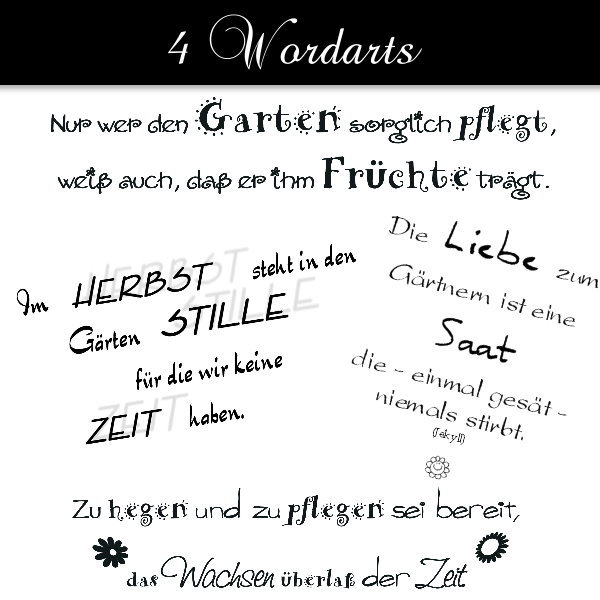 4 Wordarts
Nur wer den Garten sorglich pflegt,
weiß auch, daß er ihm Früchte trägt.
Im HERBST steht in den
Gärten STILLE
für die wir keine
ZEIT haben.
Die Liebe zum
Gärtnern ist eine
Saat
die - einmal gesät -
niemals stirbt.
(Jekyll)
Zu hegen und zu pflegen sei bereit,
das Wachsen überlaß der Zeit